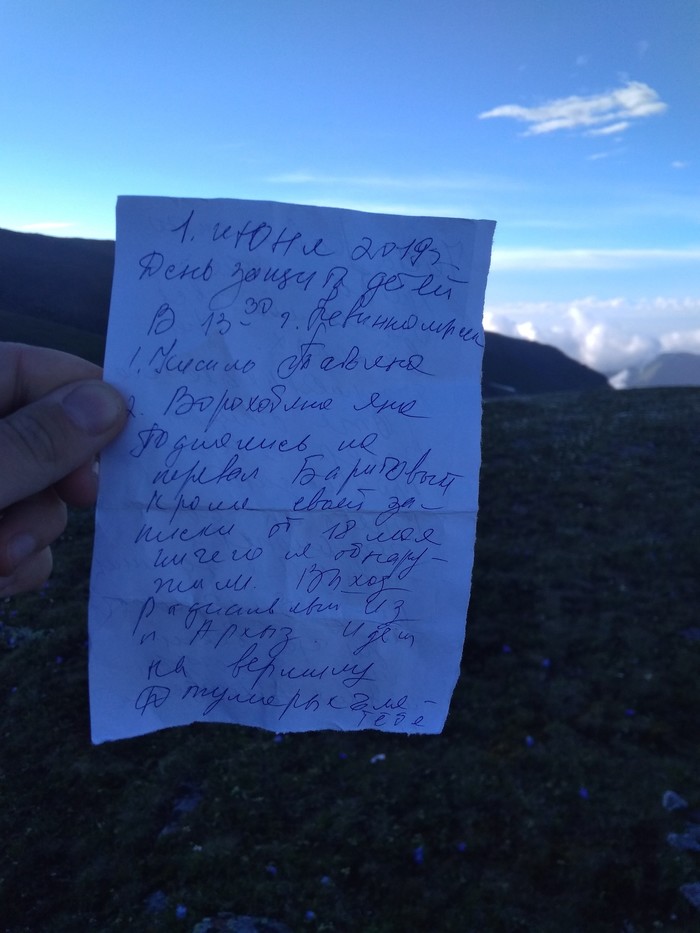 1. июня 2019г.
День защиты детей
В 13-30 г. Невинномысск
1. Кисиль Татьяна
2. Ворохобина Яна
Поднялись на
перевал Баритовый
Кроме своей за-
писки от 18 мая
ничего не обнару-
жили. Выход
радиальный из
п Архыз. Идём
на вершину